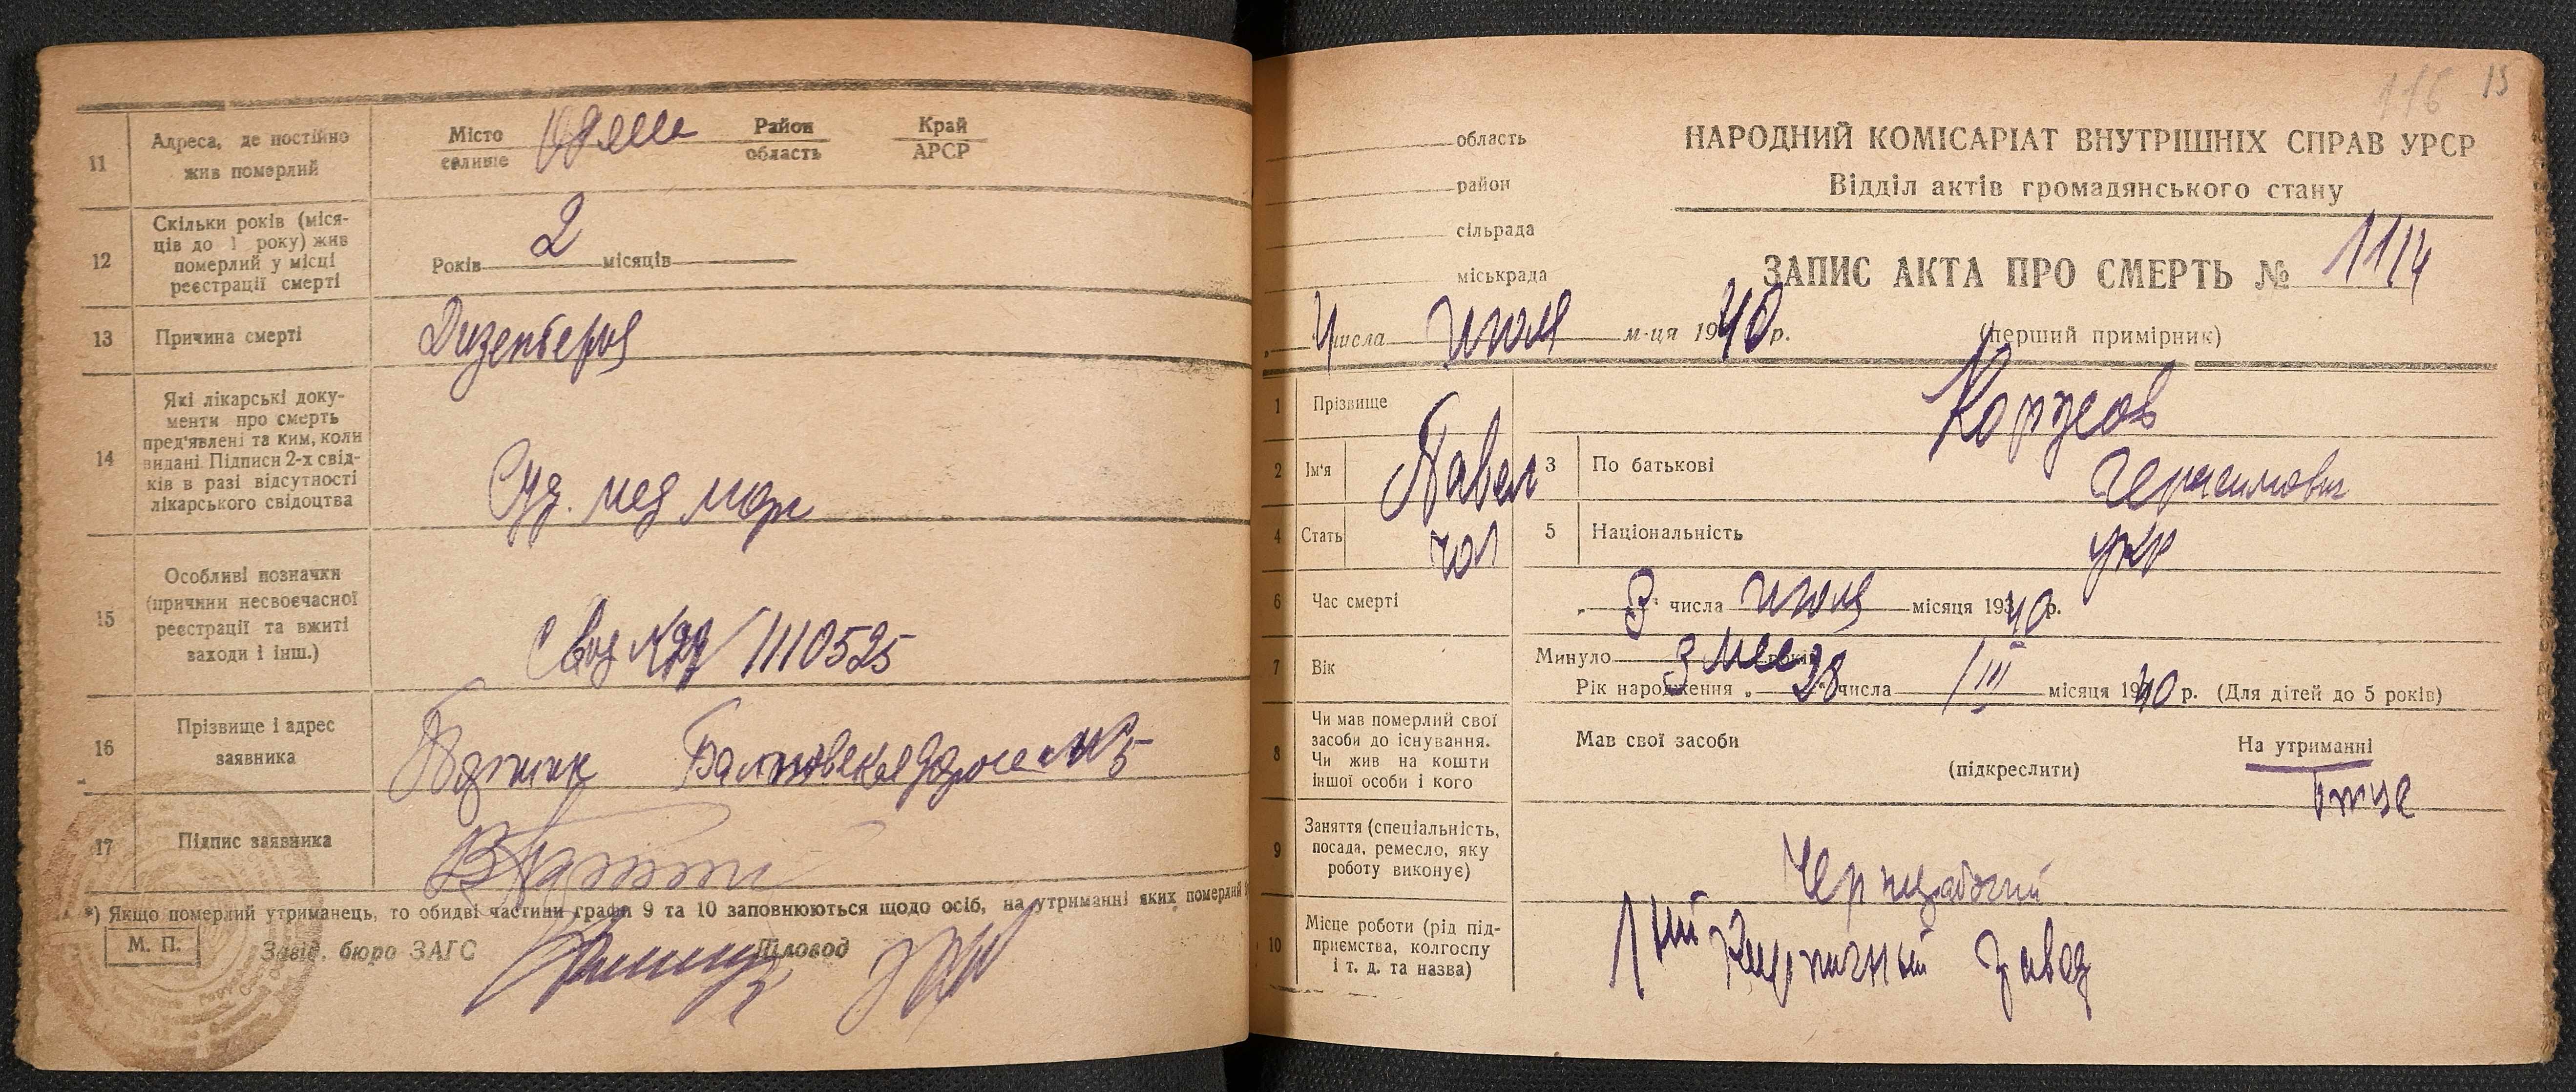 11
Адреса, де постійно
жив померлий
Місто
селище
Район
область
Край
АРСР
12
Скільки років (міся-
ців до 1 року) жив
померлий у місці
реєстрації смерті
Років 2 місяців
13
Причина смерті
Дизентерия
14
Які лікарські доку-
менти про смерть
пред'явлені та ким, коли
видані. Підписи 2-х свід-
ків в разі відсутності
лікарського свідоцтва
Суд. мед морг
15
Особливі позначки
(причини несвоєчасної
реєстрації та вжиті
заходи і інш.)
1110525
16
Прізвище і адрес
заявника
№5
17
Підпис заявника
*) Якщо померлий утриманець, то обидві частини графи 9 та 10 заповнюються щодо осіб, на утриманні яких померлий
М. П.
Завід. бюро ЗАГС
Діловод
116 15
область
район
сільрада
міськрада
НАРОДНИЙ КОМІСАРІАТ ВНУТРІШНІХ СПРАВ УРСР
Відділ актів громадянського стану
ЗАПИС АКТА ПРО СМЕРТЬ № 1114
„ 4 числа июля м-ця 1940 р.
(перший примірник)
1
Прізвище
Корусов
2
Ім'я
Павел
3
По батькові
Герасимович
4
Стать
чол
5
Національність
укр
6
Час смерті
„ 3 " числа июля місяця 1940 р.
7
Вік
Минуло 3 мес років
Рік народження „ 28 " числа III місяця 1940 р. (Для дітей до 5 років)
8
Чи мав померлий свої
засоби до існування.
Чи жив на кошти
іншої особи і кого
Мав свої засоби
(підкреслити)
На утриманні
отце
9
Заняття (спеціальність,
посада, ремесло, яку
роботу виконує)
Чернорабочий
10
Місце роботи (рід під-
приємства, колгоспу
і т. д. та назва)
1 ший Кирпичный завод